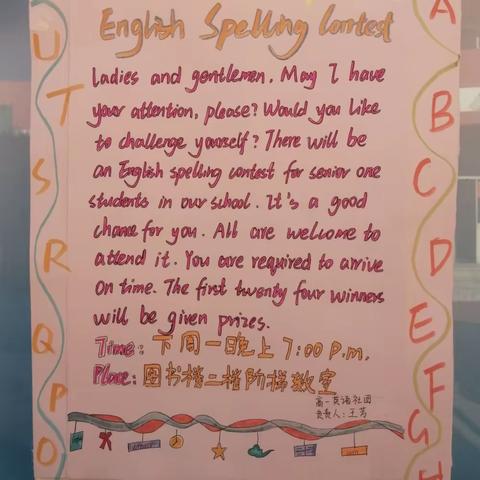 English Spelling Contest
Ladies and gentlemen. May I have
your attention, please? Would you like
to challenge yourself? There will be
an English spelling contest for senior one
students in our school. It's a good
chance for you. All are welcome to
attend it. You are required to arrive
on time. The first twenty four winners
will be given prizes.
Time: 下周一晚上7:00 P.m.
Place: 图书楼二楼阶梯教室
高一英语社团
负责人:王芳
U
T
S
R
Q
P
O
A
B
C
D
E
F
G
H